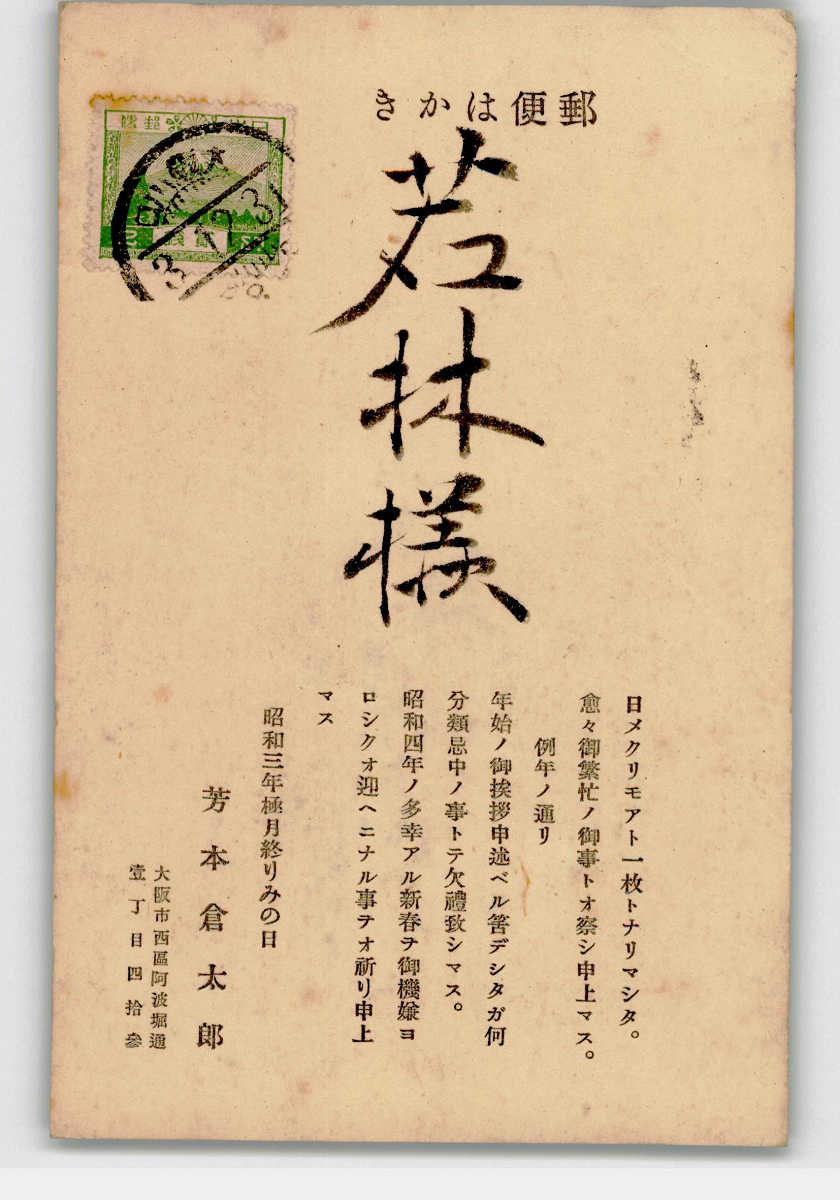 きかは便郵
若林様
日メクリモアト一枚トナリマシタ。
愈々御繁忙ノ御事トオ察シ申上マス。
例年ノ通リ
年始ノ御挨拶申述ベル筈デシタガ何
分類忌中ノ事トテ欠禮致シマス。
昭和四年ノ多幸アル新春ヲ御機嫌ヨ
ロシクオ迎ヘニナル事ヲオ祈り申上
マス
昭和三年極月終りみの日
芳本倉太郎
大阪市西區阿波堀通
壹丁目四拾參
3.12.31